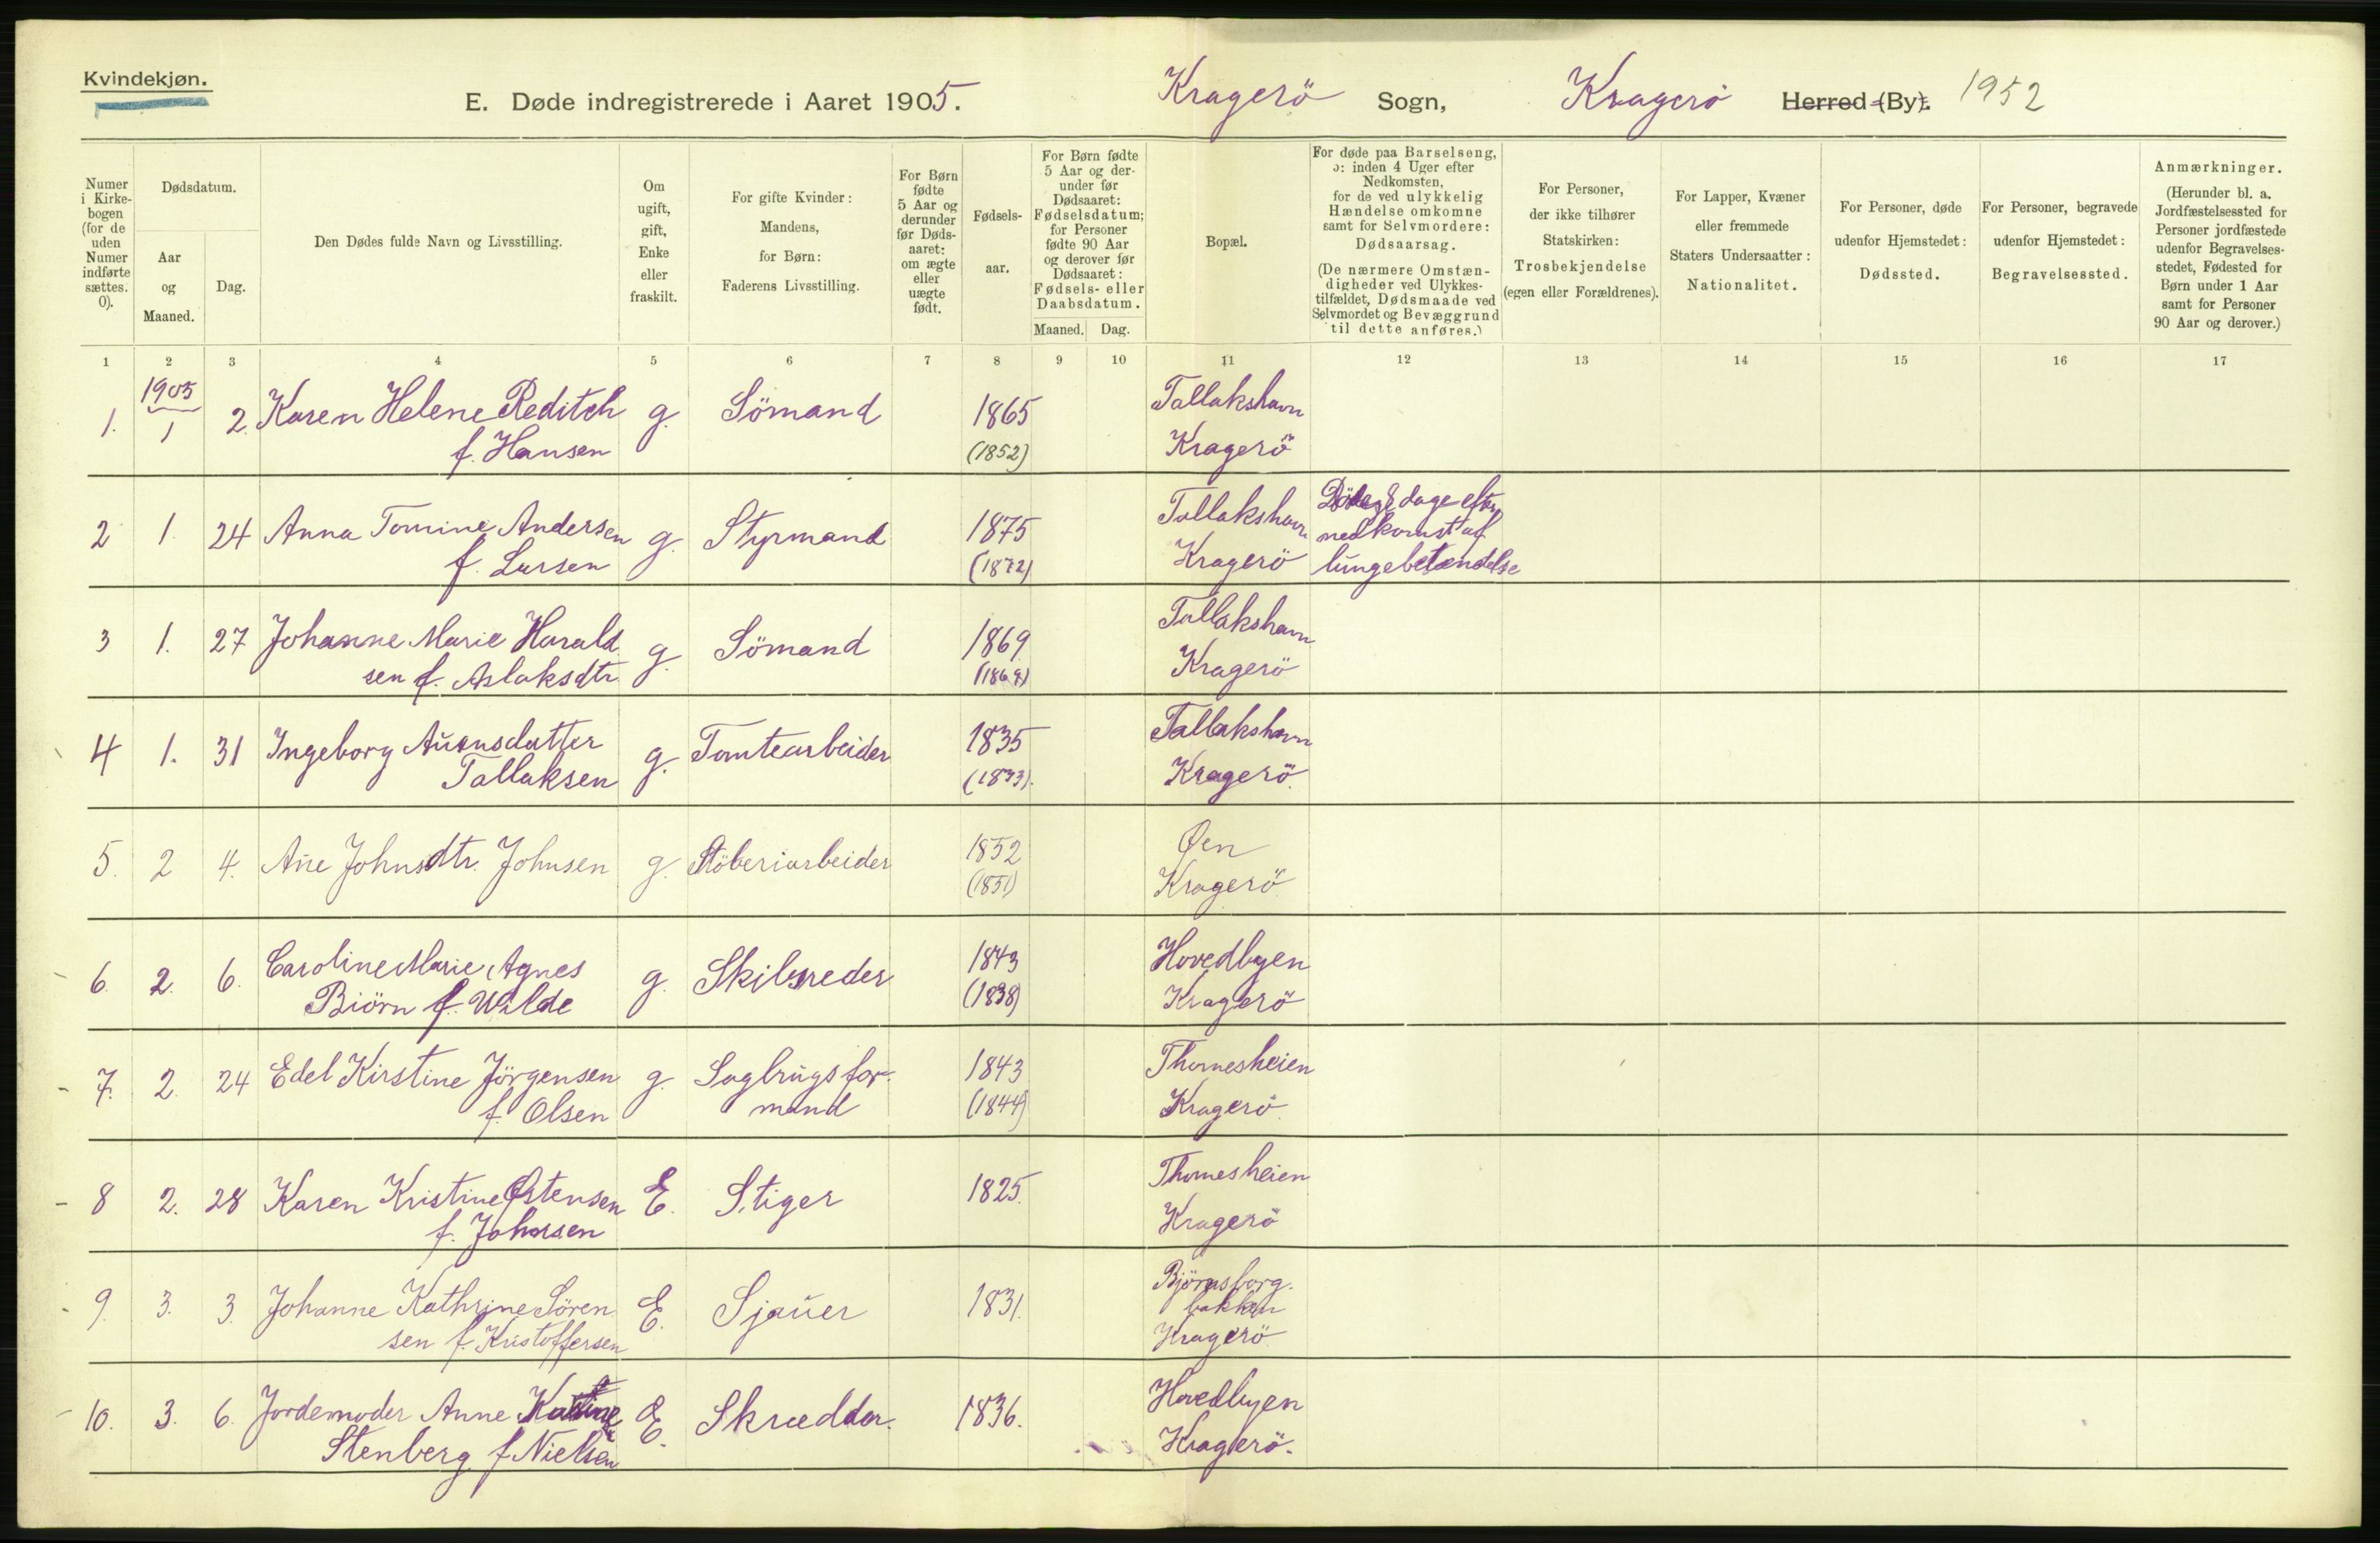 Kvindekjøn.
E. Døde indregistrerede i Aaret 1905. Kragerö Sogn, Kragerö Herred (By). 1952
Numer i Kirke-bogen (for de uden Numer indførte sættes. 0).
Dødsdatum.
Aar og Maaned.
Dag.
Den Dødes fulde Navn og Livsstilling.
Om ugift, gift, Enke eller fraskilt.
For gifte Kvinder: Mandens, for Børn: Faderens Livsstilling.
For Børn fødte 5 Aar og derunder før Døds-aaret: om ægte eller uægte født.
Fødsels-aar.
For Børn fødte 5 Aar og der-under før Dødsaaret: Fødselsdatum; for Personer fødte 90 Aar og derover før Dødsaaret: Fødsels- eller Daabsdatum.
Maaned. Dag.
Bopæl.
For døde paa Barselseng, ɔ: inden 4 Uger efter Nedkomsten, for de ved ulykkelig Hændelse omkomne samt for Selvmordere: Dødsaarsag.
(De nærmere Omstæn-digheder ved Ulykkes-tilfældet, Dødsmaade ved Selvmordet og Bevæggrund til dette anføres.)
For Personer, der ikke tilhører Statskirken: Trosbekjendelse (egen eller Forældrenes).
For Lapper, Kvæner eller fremmede Staters Undersaatter: Nationalitet.
For Personer, døde udenfor Hjemstedet: Dødssted.
For Personer, begravede udenfor Hjemstedet: Begravelsessted.
Anmærkninger.
(Herunder bl. a. Jordfæstelsessted for Personer jordfæstede udenfor Begravelses-stedet, Fødested for Børn under 1 Aar samt for Personer 90 Aar og derover.)
1 2 3 4 5 6 7 8 9 10 11 12 13 14 15 16 17
1905
1. 1 2. Karen Helene Reditch g. Sömand 1865 Tallakshavn
f. Hansen (1852) Kragerö
2 1. 24 Anna Tomine Andersen g. Styrmand 1875 Tallakshavn Döde 8 dage efter
f. Larsen (1872) Kragerö nedkomst af
lungebetændelse
3 1. 27 Johanne Marie Harald g. Sömand 1869 Tallakshavn
sen f. Aslaksdtr. (1869) Kragerö
4 1. 31 Ingeborg Auensdatter g. Tomtearbeider 1835 Tallakshavn
Tallaksen (1833). Kragerö.
5. 2 4. Ane Johnsdtr. Johnsen g. Stöberiarbeider 1852 Øen
(1851) Kragerö
6. 2. 6. Caroline Marie Agnes g. Skibsreder 1843 Hovedbyen
Biörn f. Wilde (1838) Kragerö
7. 2. 24 Edel Kirstine Jörgensen g. Sagbrugsfor- 1843 Thomesheien
f. Olsen mand (1844) Kragerö
8 2. 28 Karen Kristine Østensen E. Stiger 1825. Thomesheien
f. Johnsen Kragerö
9. 3. 3. Johanne Kathrine Sören E. Sjauer 1831. Björnsborg-
sen f. Kristoffersen bakken
Kragerö
10. 3. 6. Jordemoder Anne E. Skrædder. 1836. Hovedbyen
Stenberg f. Nielsen Kragerö.